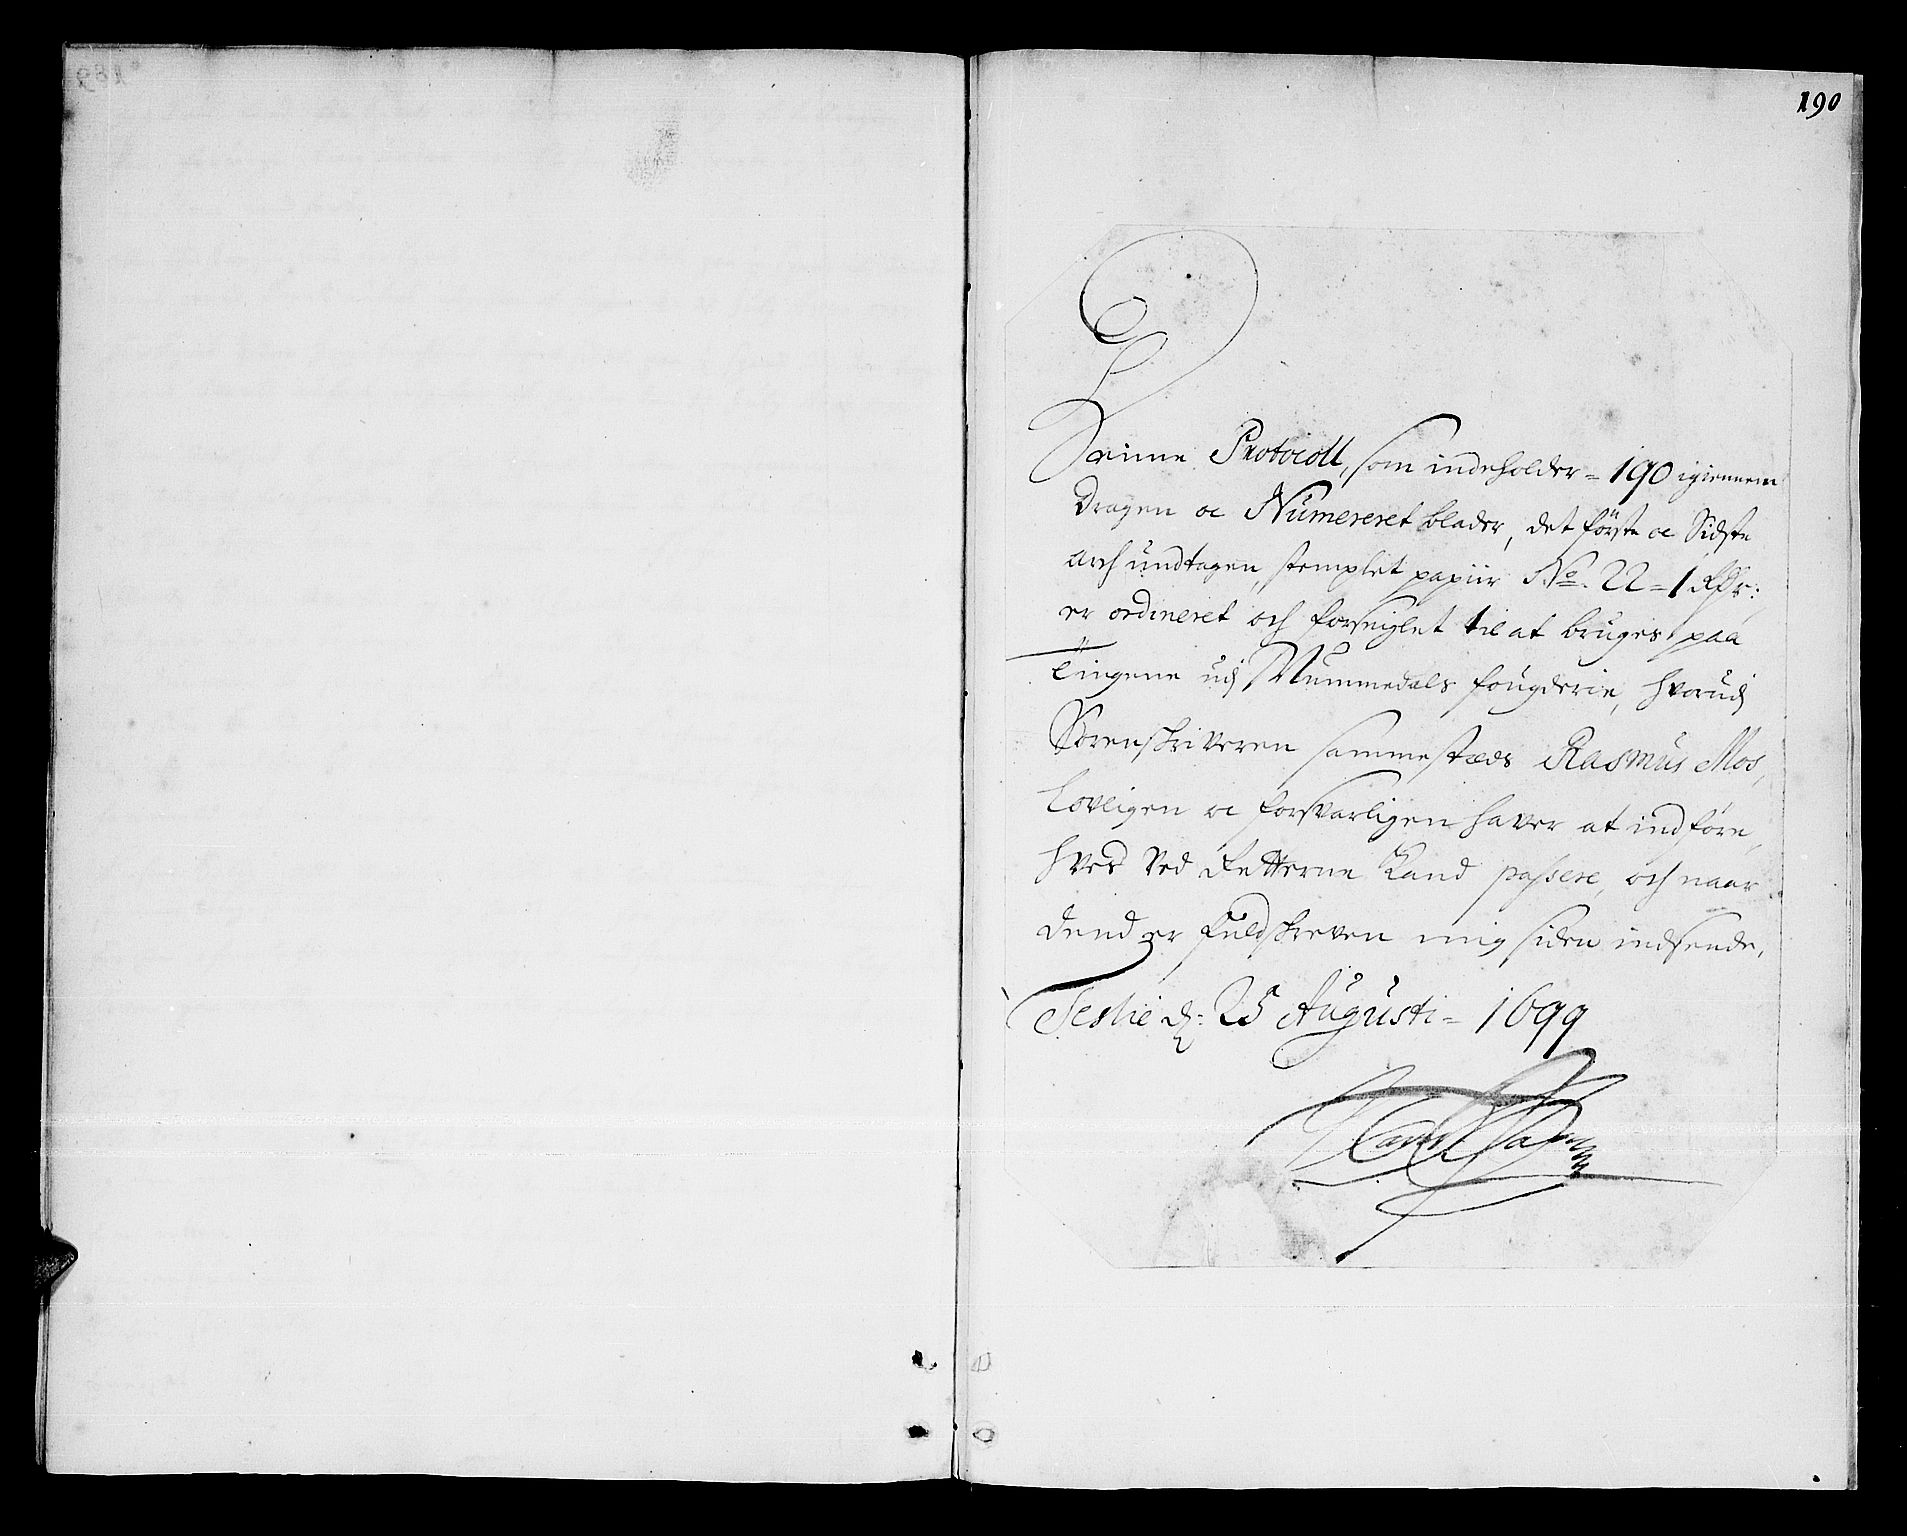 190
Denne Protocoll, som indeholder = 190 igiennem
dragen oc Numereret blader, det förste oc Sidste
arch undtagen, stemplet papiir No. 22 = 1 Rdr:
er ordineret och forseiglet til at bruges paa
Tingene udj Nummedals fougderie, hvorudj
Sorenskriveren sammestæds Rasmus Mos,
lovligen oc forsvarligen haver at indföre,
hves Ved Retterne Kand passere, och naar
dend er fuldskreven mig siden indsende,
d: 25 Augusti = 1699
189